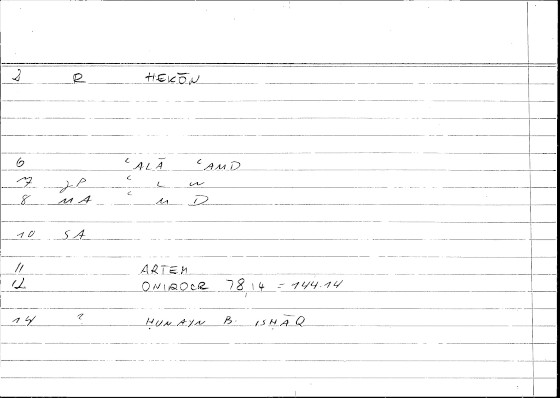 2 R HEKŌN
6 ʿALĀ ʿAMD
7 JP ʿ L W
8 MA ʿ M D
10 SA
11 ARTEM
12 ONIROCR 78,4 = 144.14
14 ? HUNAYN B. ISHĀQ